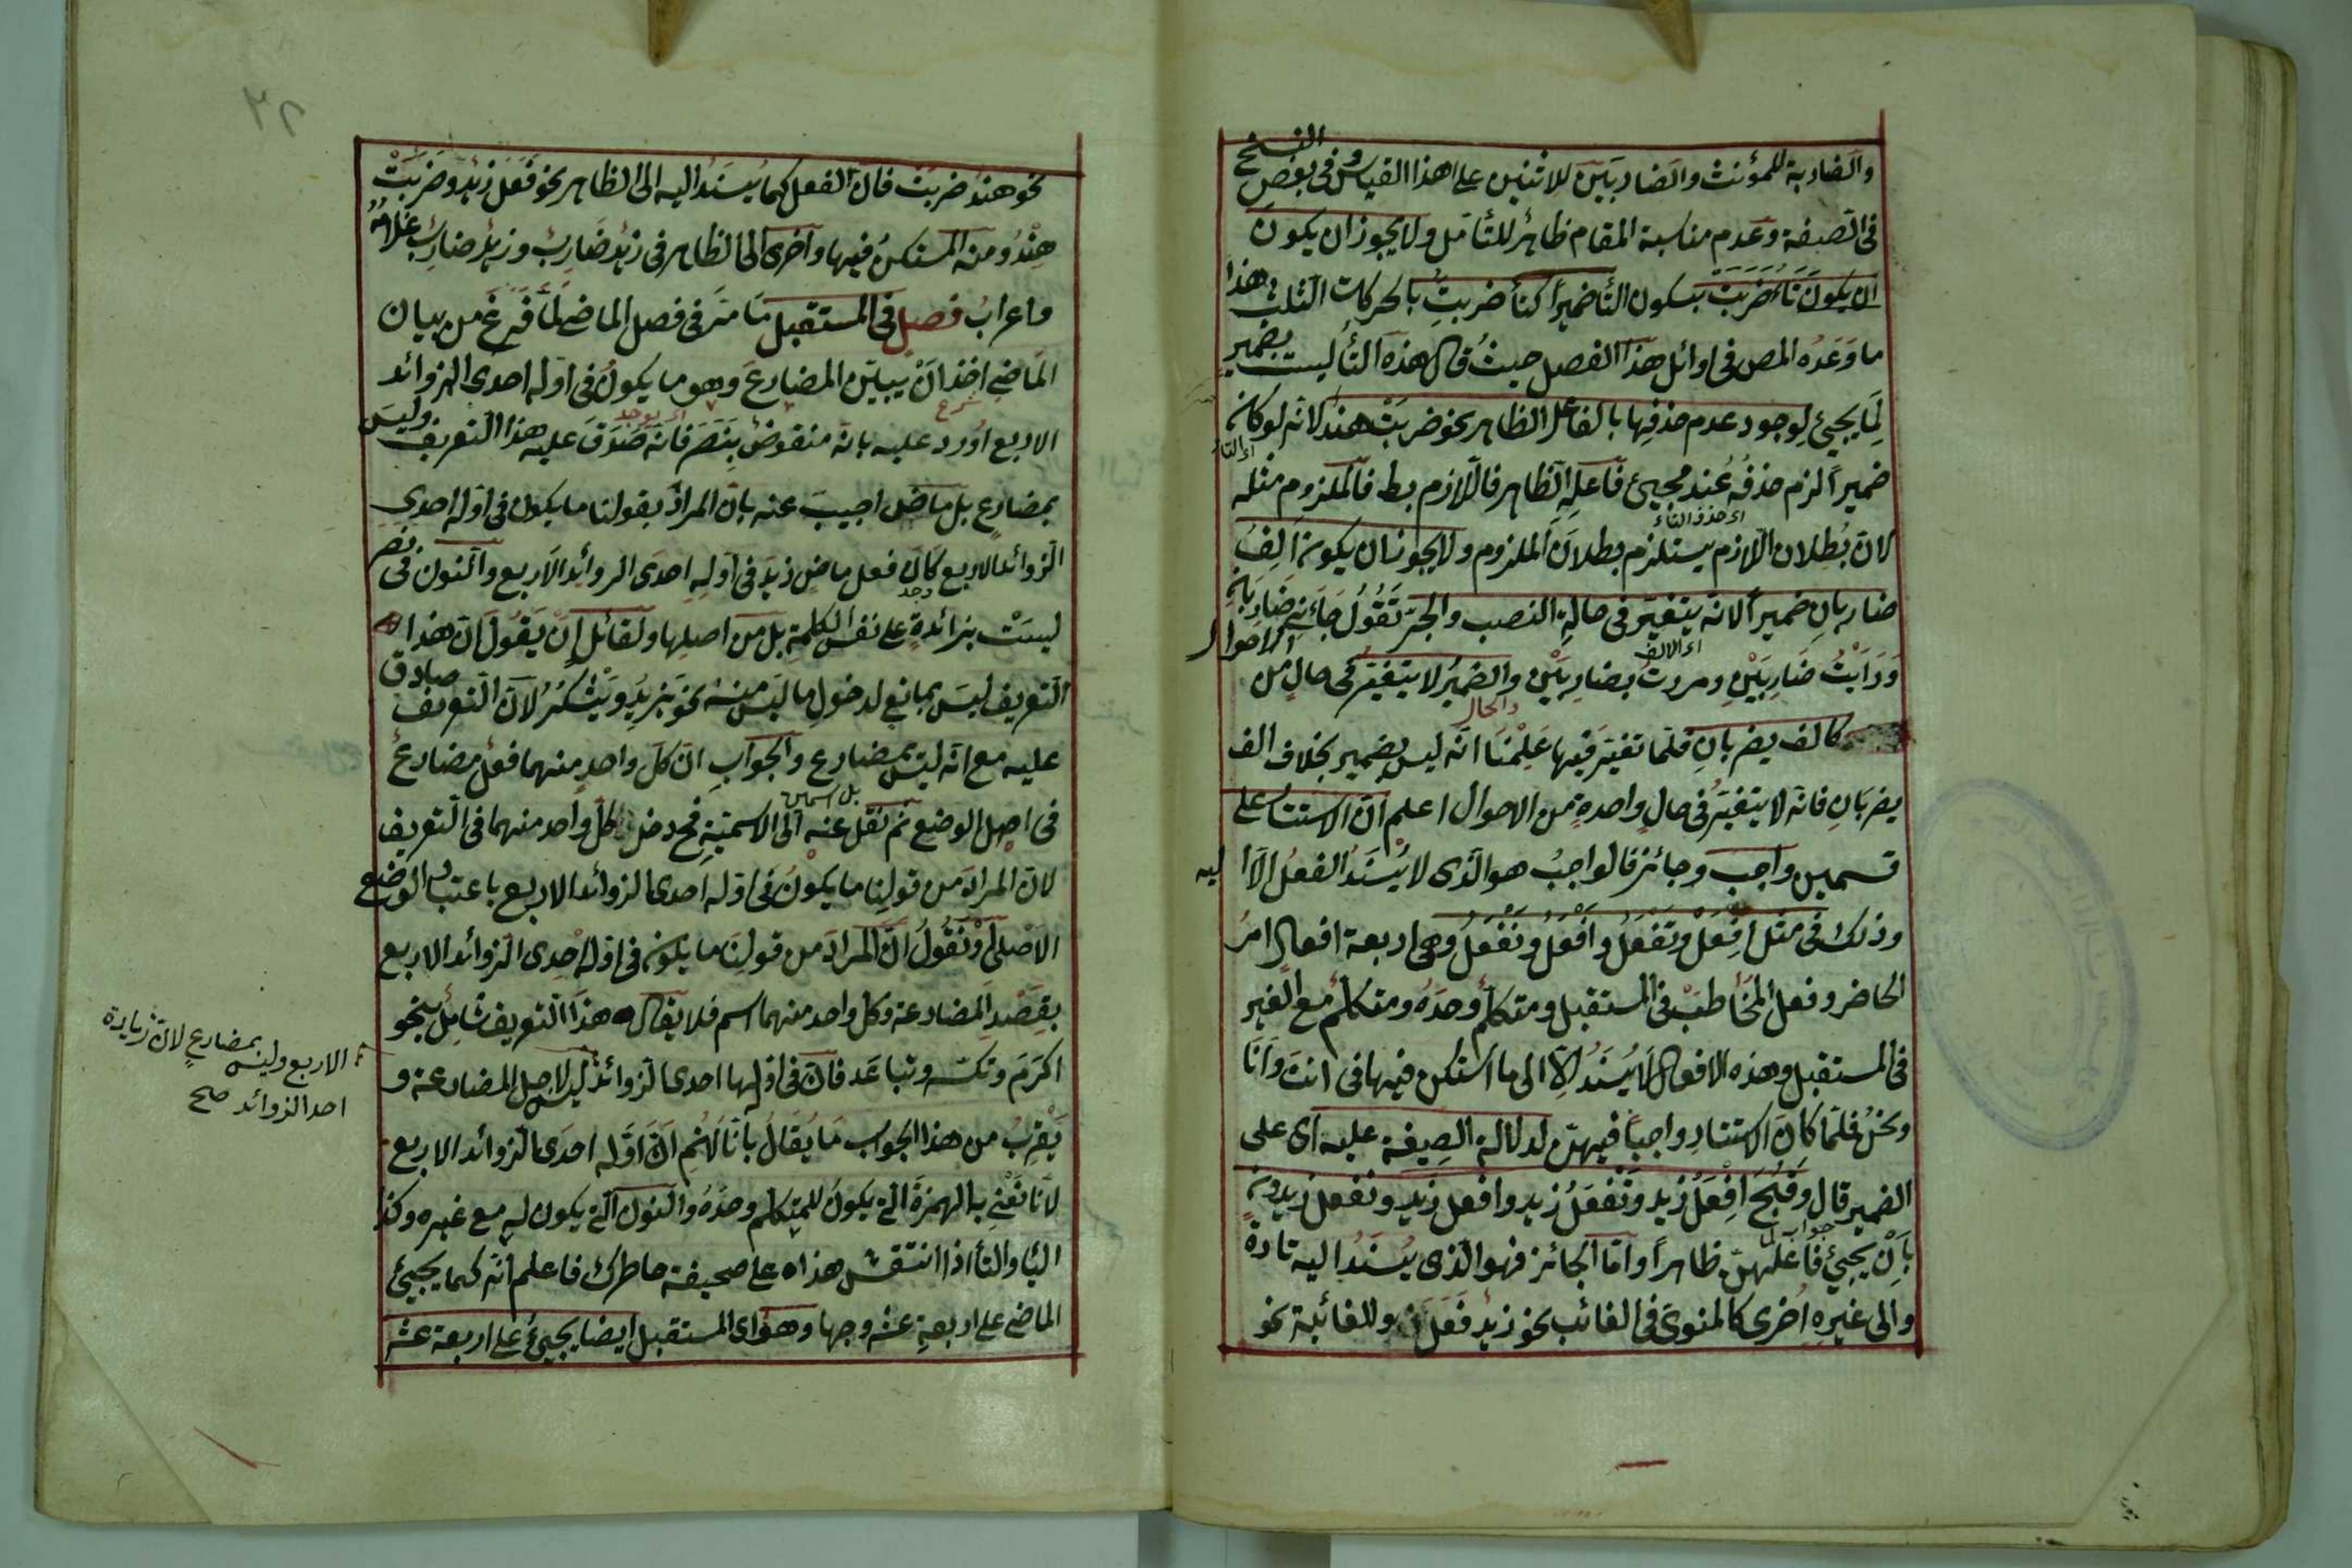 والضاربة للمؤنث والضاربتين للاثنين على هذا القياس وفى بعض النسخ
فى الصيغة وعدم مناسبة المقام ظاهر للتأمل ولا يجوز ان يكون
ان يكون تاء ضربت بسكون التأ ضميراً كتأ ضربت بالحركات الثلث هذا
ما وعده المص فى اوائل هذا الفصل حيث قال هذه التأ ليست بضمير
لما يجيئ لوجود عدم حذفها بالفاعل الظاهر نحو ضربت هند لانه لو كان
اى التاء
ضميراً لزم حذفه عند مجيئ فاعله الظاهر فاللازم بط فالملزوم مثله
اى حذف التاء
لان بطلان اللازم يستلزم بطلان الملزوم ولا يجوز ان يكون الف
ضاربان ضميراً لانه يتغير فى حالة النصب والجر تقول جائنى ضاربان
ورايت ضاربين ومررت بضاربين والضمير لا يتغير فى حال من الاحوال
اى الالف
كالف يضربان فلما تغير فيها علمنا انه ليس بضمير بخلاف الف
يضربان فانه لا يتغير فى حال واحدة من الاحوال اعلم ان الاستتار على
قسمين واجب وجائز فالواجب هو الذى لا يسند الفعل الا اليه
وذلك فى مثل افعل وتفعل وافعل ونفعل وهى اربعة افعال امر
الحاضر وفعل المخاطب فى المستقبل ومتكلم وحده ومتكلم مع الغير
فى المستقبل وهذه الافعال لا يسند الا الى ما استكن فيها فى انت وانا
ونحن فلما كان الاستتار واجباً فيهن لدلالة الصيغة عليه اى على
الضمير قال وقبح افعل زيد وتفعل زيد وافعل زيد ونفعل زيد
جواب لما
بان يجيئ فاعلهن ظاهراً واما الجائز فهو الذى يسند اليه تارة
والى غيره اخرى كالمنوى فى الغائب نحو زيد فعل وللغائبة نحو
٢٦
نحو هند ضربت فان الفعل كما يسند اليه الى الظاهر نحو فعل زيد وضربت
هند ومنه المستكن فيها واخرى الى الظاهر فى زيد ضارب وزيد ضارب غلامه
واعراب فصل فى المستقبل ما مر فى فصل الماضى لما فرغ من بيان
الماضى اخذ ان يبين المضارع وهو ما يكون فى اوله احدى الزوائد
شرع
اى يوجد
الاربع اورد عليه بانه منقوض بنصر فانه صدق عليه هذا التعريف وليس
بمضارع بل ماض اجيب عنه بان المراد بقولنا ما يكون فى اوله احدى
الزوائد الاربع كان فعل ماض زيد فى اوله احدى الزوائد الاربع والنون فى نصر
وجد
ليست بزائدة على نفس الكلمة بل من اصلها ولقائل ان يقول ان هذا
التعريف ليس بمانع لدخول ما ليس منه نحو يزيد ويشكر لان التعريف صادق
عليه مع انه ليس بمضارع والجواب ان كل واحد منهما فعل مضارع
بل اسمين
فى اصل الوضع ثم نقل عنه الى الاسمية فح دخل كل واحد منهما فى التعريف
لان المراد من قولنا ما يكون فى اوله احدى الزوائد الاربع باعتبار الوضع
الاصلى او نقول ان المراد من قولنا ما يكون فى اوله احدى الزوائد الاربع
بقصد المضارعة وكل واحد منهما اسم فلا يقال هذا التعريف شامل بنحو
اكرم وتكسر وتباعد فان فى اولها احدى الزوائد ليس لاجل المضارعة و
الاربع وليس بمضارع لان زيادة
احد الزوائد صح
يقرب من هذا الجواب ما يقال بانا لانم ان اوله احدى الزوائد الاربع
لانا نعنى بالهمزة التى يكون للمتكلم وحده والنون التى يكون له مع غيره وكذا
اليا والتأ اذا انتقش هذا على صحيفة خاطرك فاعلم انه كما يجيئ
الماضى على اربعة عشر وجها وهو اى المستقبل ايضا يجيئ على اربعة عشر